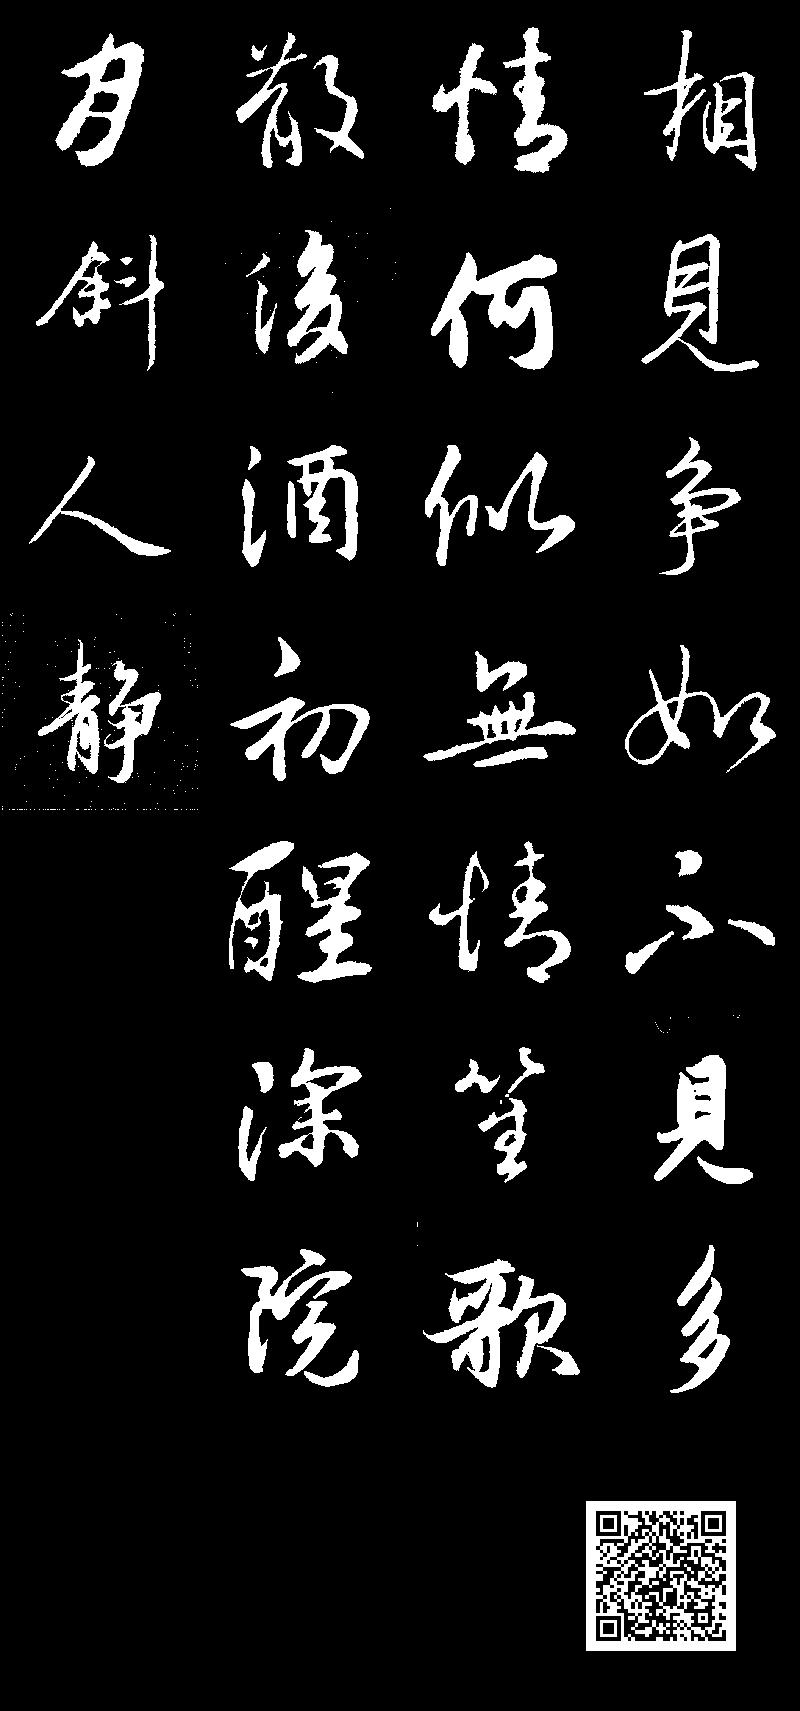 相見争如不見多
情何似無情笙歌
散後酒初醒深院
月斜人静